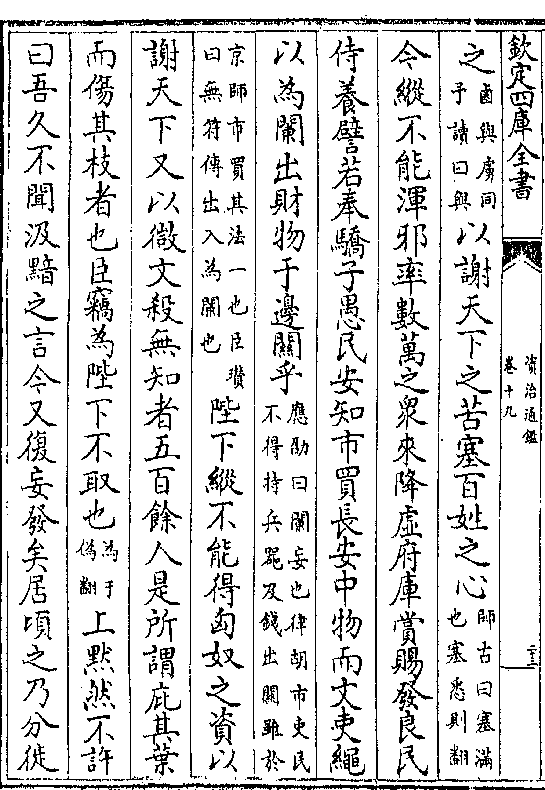 欽定四庫全書
資治通鑑
卷十九
二十三
之鹵與虜同予讀曰與以謝天下之苦塞百姓之心師古曰塞滿也塞悉則翻
今縱不能渾邪率數萬之衆來降虛府庫賞賜發良民
侍養譬若奉驕子愚民安知市買長安中物而文吏繩
以為闌出財物于邊關乎應劭曰闌妄也律胡市吏民不得持兵器及錢出關雖於
京師市買其法一也臣瓚曰無符傳出入為闌也陛下縱不能得匈奴之資以
謝天下又以微文殺無知者五百餘人是所謂庇其葉
而傷其枝者也臣竊為陛下不取也為于偽翻上黙然不許
曰吾久不聞汲黯之言今又復妄發矣居頃之乃分徙